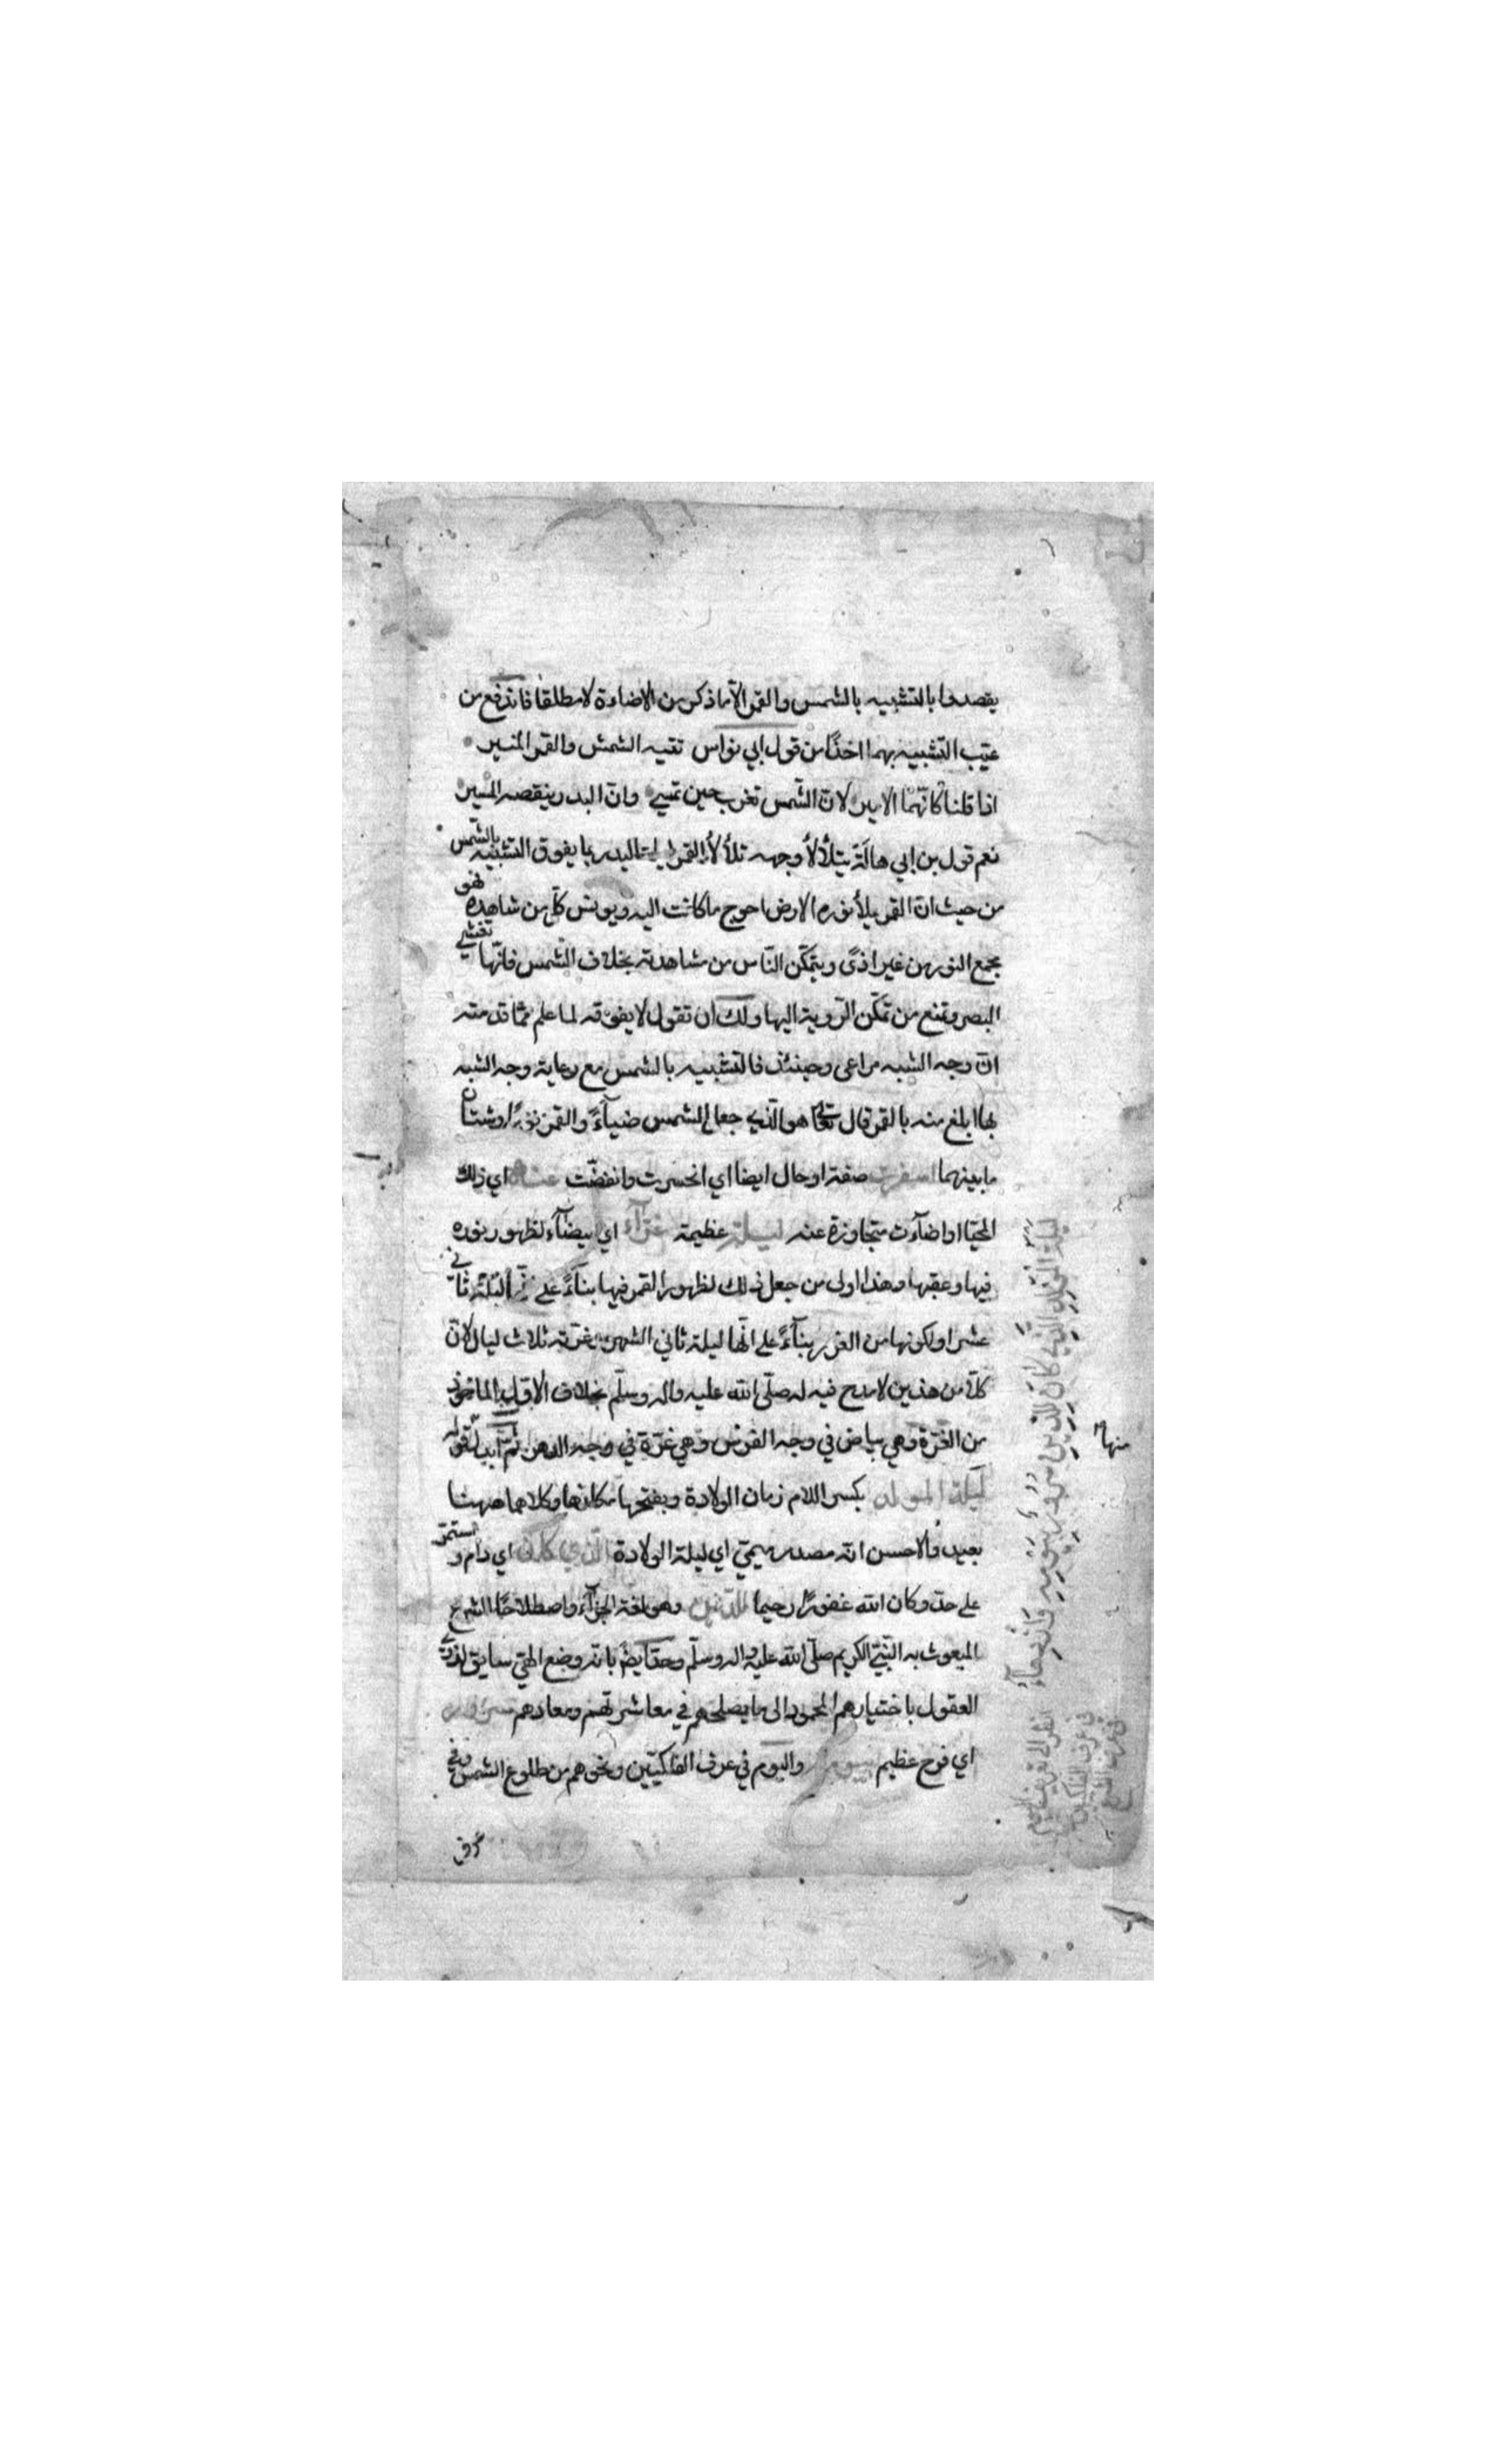 يقصدها بالتشبيه بالشمس والقمر الا ما ذكر من الاضاءة لا مطلقا فاندفع من
عيب التشبيه بهما اخذًا من قول ابي نواس تتيه الشمس والقمر المنير
اذا قلنا كانّهما الامير لانّ الشّمس تغرب حين تمسي وانّ البدر ينقصه المسير
نعم قول بن ابي هالة يتلألأ وجهه تلألأ القمر ليلة البدر بما يفوق التشبيه بالشّمس
من حيث انّ القمر يملأ نوره الارض احوج ما كانت اليه ويونس كلّ من شاهده فهو
مجمع النور من غير اذًى ويتمكّن النّاس من مشاهدته بخلاف الشّمس فانّها تغشي
البصر وتمنع من تمكّن الرّوية اليها ولك ان تقول لا يفوقه لما علم ممّا قدمته
انّ وجه الشبه مراعى وحينئذ فالتشبيه بالشمس مع رعاية وجه الشبه
بها ابلغ منه بالقمر قال تعالى هو الّذي جعل الشمس ضيآءً والقمر نورًا وشتان
ما بينهما اسفرت صفة او حال ايضا اي انحسرت وانفضّت عنه اي ذلك
المحيّا او اضآءت متجاوزة عنه ليلة عظيمة غرّآء اي بيضآء لظهور نوره
فيها وعقبها وهذا اولى من جعل ذلك لظهور القمر فيها بنآءً على انّها ليلة ثاني
عشر او لكونها من الغرر بنآءً على انّها ليلة ثاني الشهر وغرّته ثلاث ليال لانّ
كلّا من هذين لا مدح فيه له صلّى الله عليه واله وسلّم بخلاف الاوّل الماخوذ
من الغرّة وهي بياض في وجه الفرس وهي غرّة في وجه الدهر ثمّ ابدل قوله
ليلة المولد بكسر اللام زمان الولادة وبفتحها مكانها وكلاهما ههنا
بعيد والاحسن انّه مصدر ميميّ اي ليلة الولادة الّذي كان اي دام و استمرّ
على حدّ وكان الله غفورًا رحيما للدّين وهو لغة الجزآء واصطلاحًا الشرع
المبعوث به النّبيّ الكريم صلّى الله عليه واله وسلّم وحدّ ايضًا بانّه وضع الهيّ سايق لذوي
العقول باختيارهم المحمود الى ما يصلحهم في معاشرتهم ومعادهم سرور
اي فرح عظيم بيومه واليوم في عرف الفلكيّين ونحوهم من طلوع الشمس وفي
عرف
ليلة المولد الّذي كان للدّين سرور بيومه وازدهآء
منها
انظر الى تعريف اليوم
في عرف الفلكيين
وفي عرف الشرع